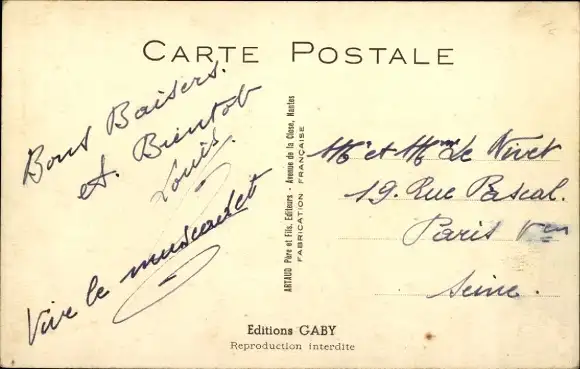 CARTE POSTALE
Bons Baisers.
et Bientot
Louis.
Vive le muscadet
ARTAUD Père et Fils, Editeurs - Avenue de la Close, Nantes
FABRICATION FRANÇAISE
Mr et Mme Le Nivet
19. Rue Pascal.
Paris Vem
Seine.
Editions GABY
Reproduction interdite